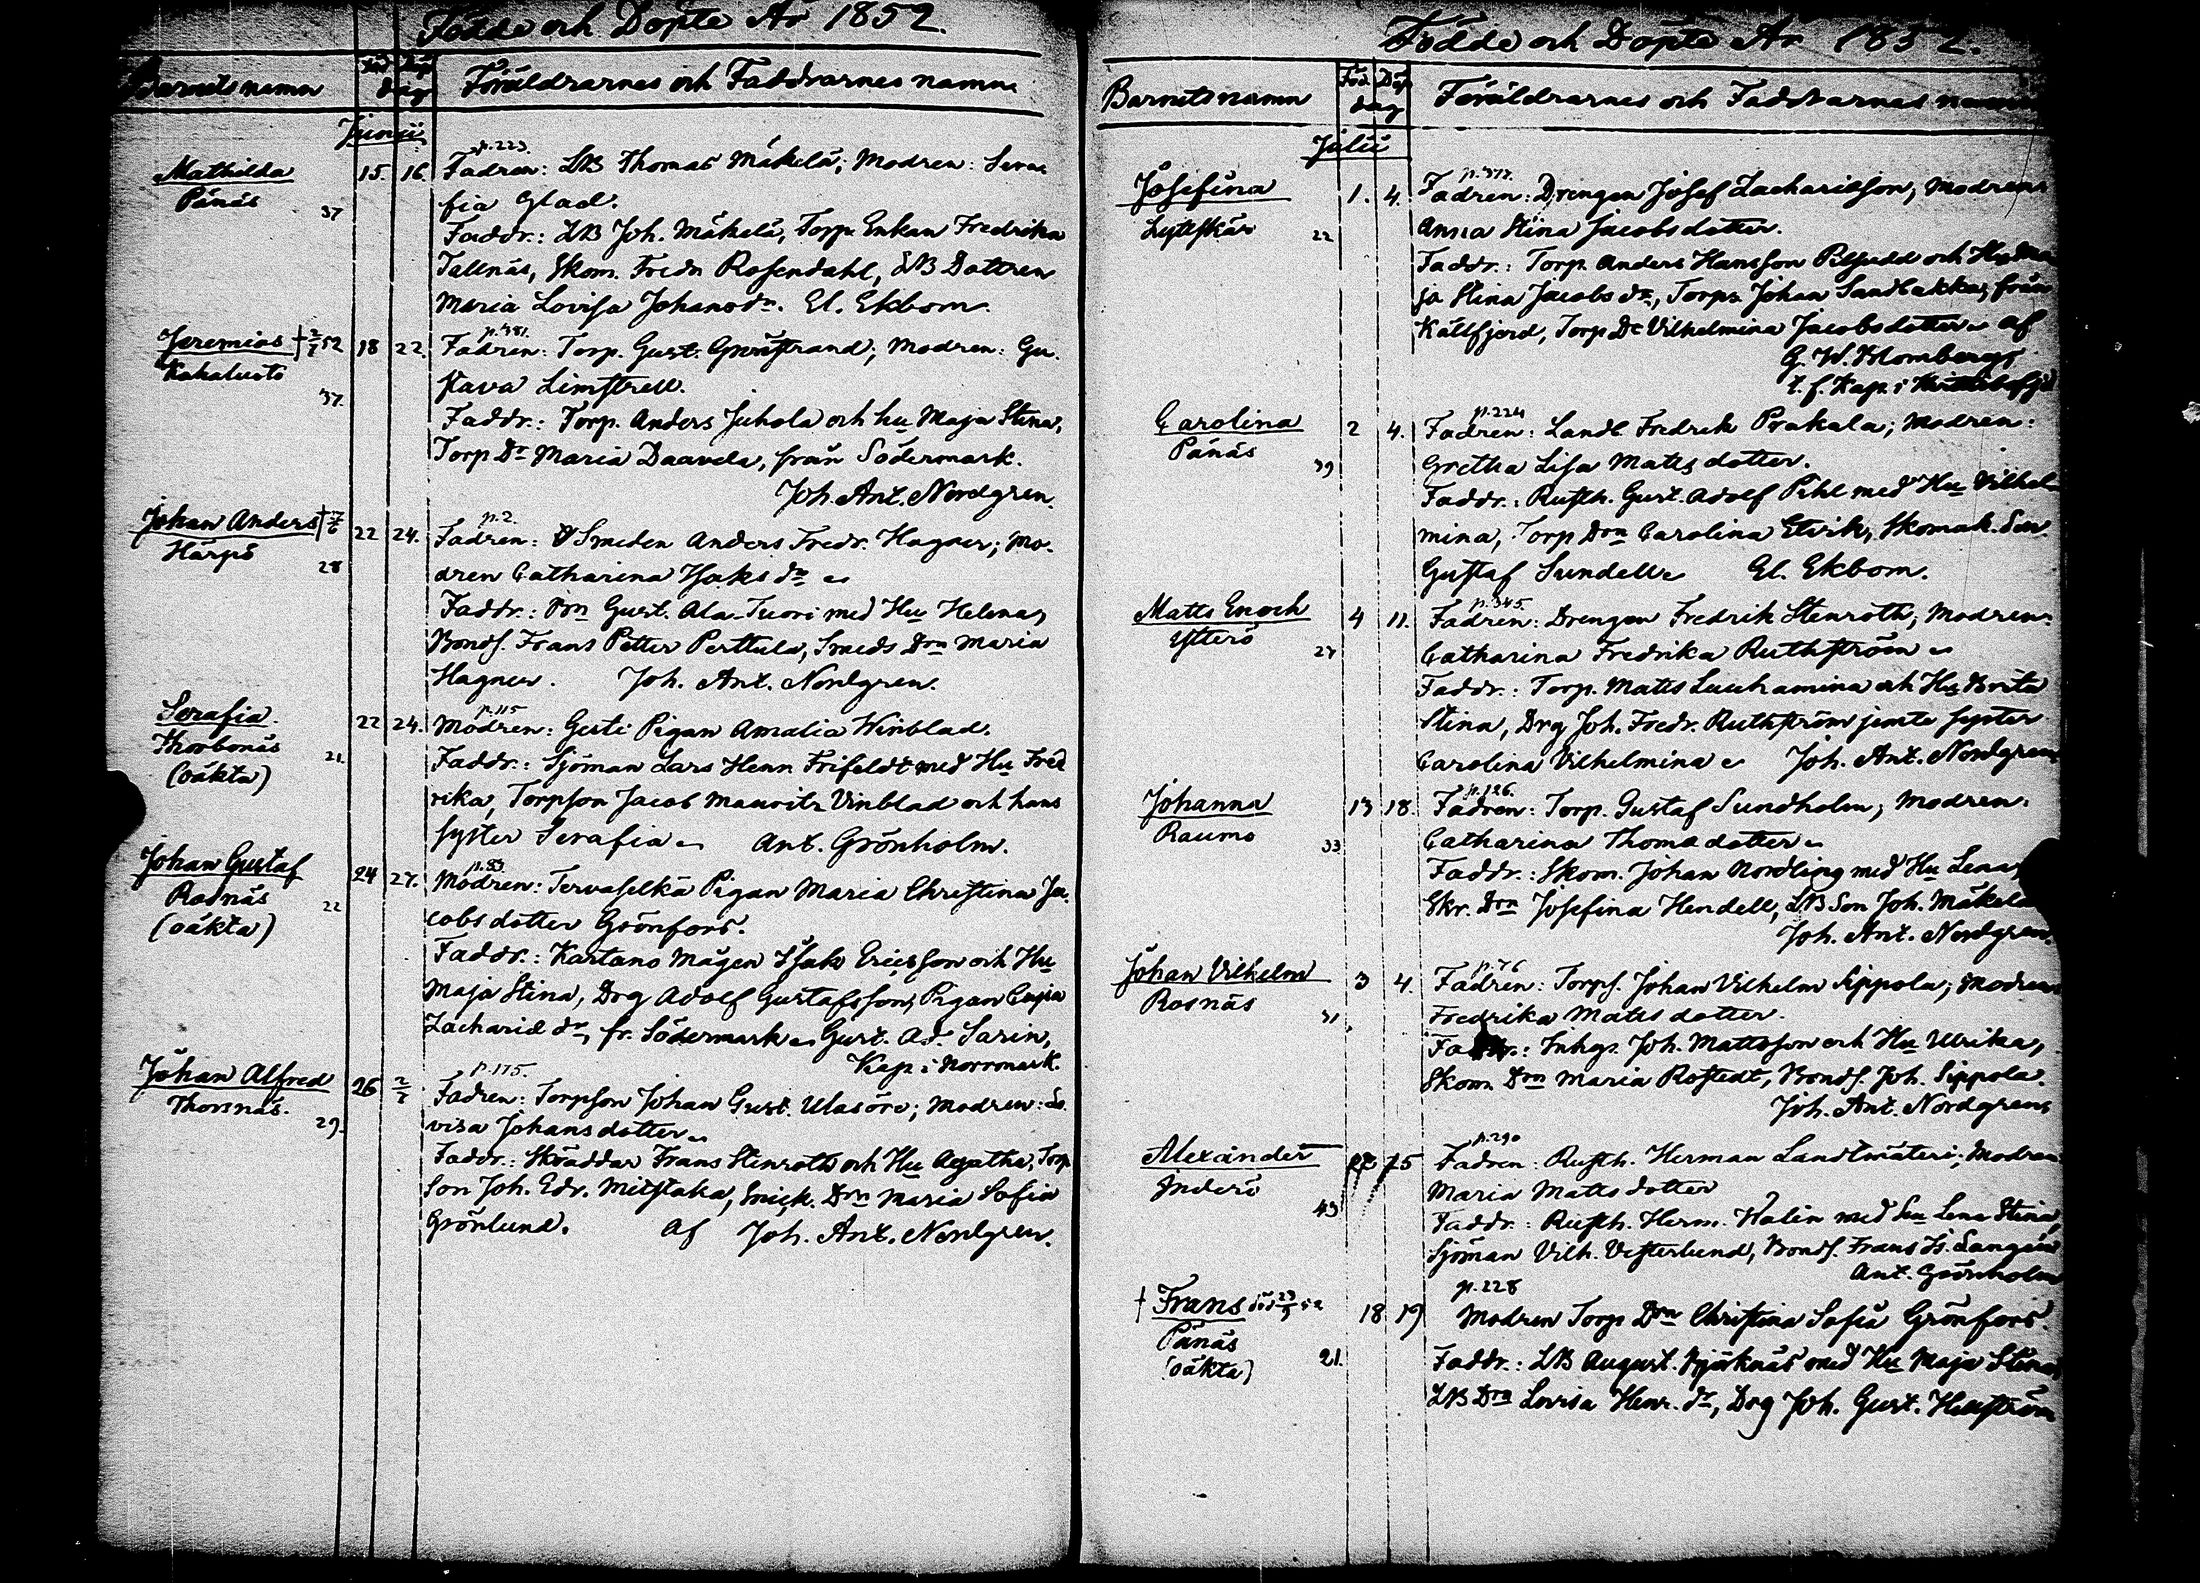 Födde och Döpte År 1852.
Barnets namn Föd Döp dag Föräldrarnes och Faddrarnes namn
Junii
Mathilda 15. 16. p.223. Fadren: LB Thomas Mäkelä; Modren: Sera
Pänäs 37 fia Glad.
Faddr.: LB Joh. Mäkelä, Torp. Enkan Fredrika
Tallnäs, Skom. Fredr. Rosendahl, LB Dottren
Maria Lovisa Johansdr. El. Ekbom.
Jeremias † 2/7 52 18 22 p.381. Fadren: Torp. Gust. Grönstrand; Modren: Gu.
Kakaluoto 37. stava Limstrell.
Faddr.: Torp. Anders Juhola och hu Maja Stina,
Torp Dr Maria Daavela, från Södermark.
Joh. Ant. Nordgren.
Johan Anders † 22 24. p.2. Fadren: Smeden Anders Fredr. Hagner; Mo-
Härpö 28 dren Catharina Isaks dr
Faddr.: Bn Gust. Ala-Tuori med Hu Helena,
Bonds. Frans Petter Perttula, Smeds Drn Maria
Hagner. Joh. Ant. Nordgren.
Serafia 22 24. p.115 Modren: Gesti Pigan Amalia Winblad.
Thorbonäs 21. Faddr.: Sjöman Lars Henr. Frifeldt med Hu Fred
(oäkta) rika, Torpson Jacob Mauritz Vinblad och hans
syster Serafia Ant. Grönholm.
Johan Gustaf 24 27. p.83. Modren: Tervaselkä Pigan Maria Christina Ja.
Rosnäs 22 cobsdotter Grönfors.
(oäkta) Faddr.: Kartano Mågen Isak Ericsson och Hu
Maja Stina, Drg Adolf Gustafsson, Pigan Cajsa
Zacharid dr, fr. Södermark Gust. Ad. Sarin,
Kap. i Norrmark.
Johan Alfred 26 2/7 p.175. Fadren: Torpson Johan Gust. Ulasöre; Modren: Lo.
Thorsnäs. 29. visa Johansdotter
Faddr.: Skräddar Frans Stenroth och Hu Agatha, Torp
son Joh. Edv. Drn Maria Sofia
Grönlund. af Joh. Ant. Nordgren.
Födde och Döpte År 1852.
Barnets namn Föd Döp dag Föräldrarnes och Faddrarnes namn
Julii
Josefina 1. 4. Fadren: Drengen Josef Zacharidsson; Modren:
Lyttskär 22 Anna Stina Jacobsdotter.
Faddr.: Torp. Anders Hansson och Hu Ma
ja Stina Jacobs dr, Torps. Johan Sandbakka, från
Källfjerd, Torp Dr Vilhelmina Jacobsdotter af
G. W. Blomberg,
t. f. Kap. i
Carolina 2 4. p.224 Fadren: Landb. Fredrik Prakala; Modren:
Pänäs 39 Gretha Lisa Matts dotter.
Faddr.: Rusth. Gust. Adolf Pihl med Hu Vilhel
mina, Torp Drn Carolina Elvik, Skomak. Son
Gustaf Sundell El. Ekbom.
Matts Enoch 4 11. p.345. Fadren: Drengen Fredrik Stenroth; Modren:
Ytterö 27 Catharina Fredrika Ruthström
Faddr.: Torp. Matts Luuhamina och Hu Brita
Stina, Drg Joh. Fredr. Ruthström jemte syster
Carolina Vilhelmina Joh. Ant. Nordgren
Johanna 13 18. p.126. Fadren: Torp. Gustaf Sundholm; Modren:
Raumo 33 Catharina Thoma dotter
Faddr.: Skom. Johan Nordling med Hu Lena,
Skr. Drn Josefina Hendell, LB Son Joh. Mäkelä
Joh. Ant. Nordgren.
Johan Vilhelm 3 4. p.76 Fadren: Torps. Johan Vilhelm Sippola; Modren
Rosnäs 31. Fredrika Matts dotter.
Faddr.: Inhys. Joh. Mattsson och Hu Ulrika,
Skom. Drn Maria Rostedt, Bonds. Joh. Sippola.
Joh. Ant. Nordgren
Alexander 25 p.290 Fadren: Rusth. Herman Landtmäteri; Modren
Inderö 43 Maria Mattsdotter
Faddr.: Rusth. Herm. Walin med hu Lena Stina,
Sjöman Vilh. Vesterlund, Bonds. Frans Is. Langén
Ant. Grönholm
† Frans död 23/ 52 18 19 p.228 Modren Torp Drn Christina Sofia Grönfors.
Pänäs 21. Faddr.: LB August Björknäs med Hu Maja Stina,
(oäkta) LB Drn Lovisa Henr. dr, Drg Joh. Gust. Hellström